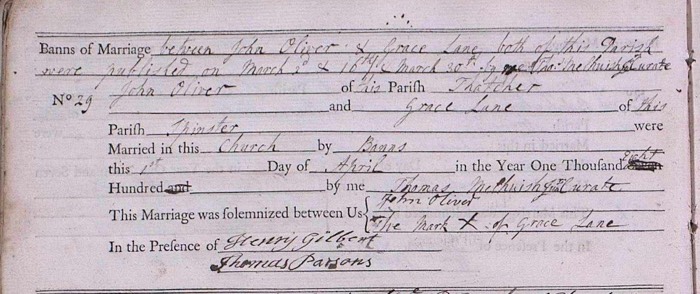 Banns of Marriage between John Oliver & Grace Lane both of this Parish
were published on March 2d & 16th & March 30th by me Thos: Melhuish Curate
No 29 John Oliver of this Parish Thatcher
and Grace Lane of this
Parish Spinster were
Married in this Church by Banns
this 1st Day of April in the Year One Thousand Eight
Hundred and by me Thomas Melhuish Curate
This Marriage was solemnized between Us John Oliver
The Mark X of Grace Lane
In the Presence of Henry Gilbert
Thomas Parsons